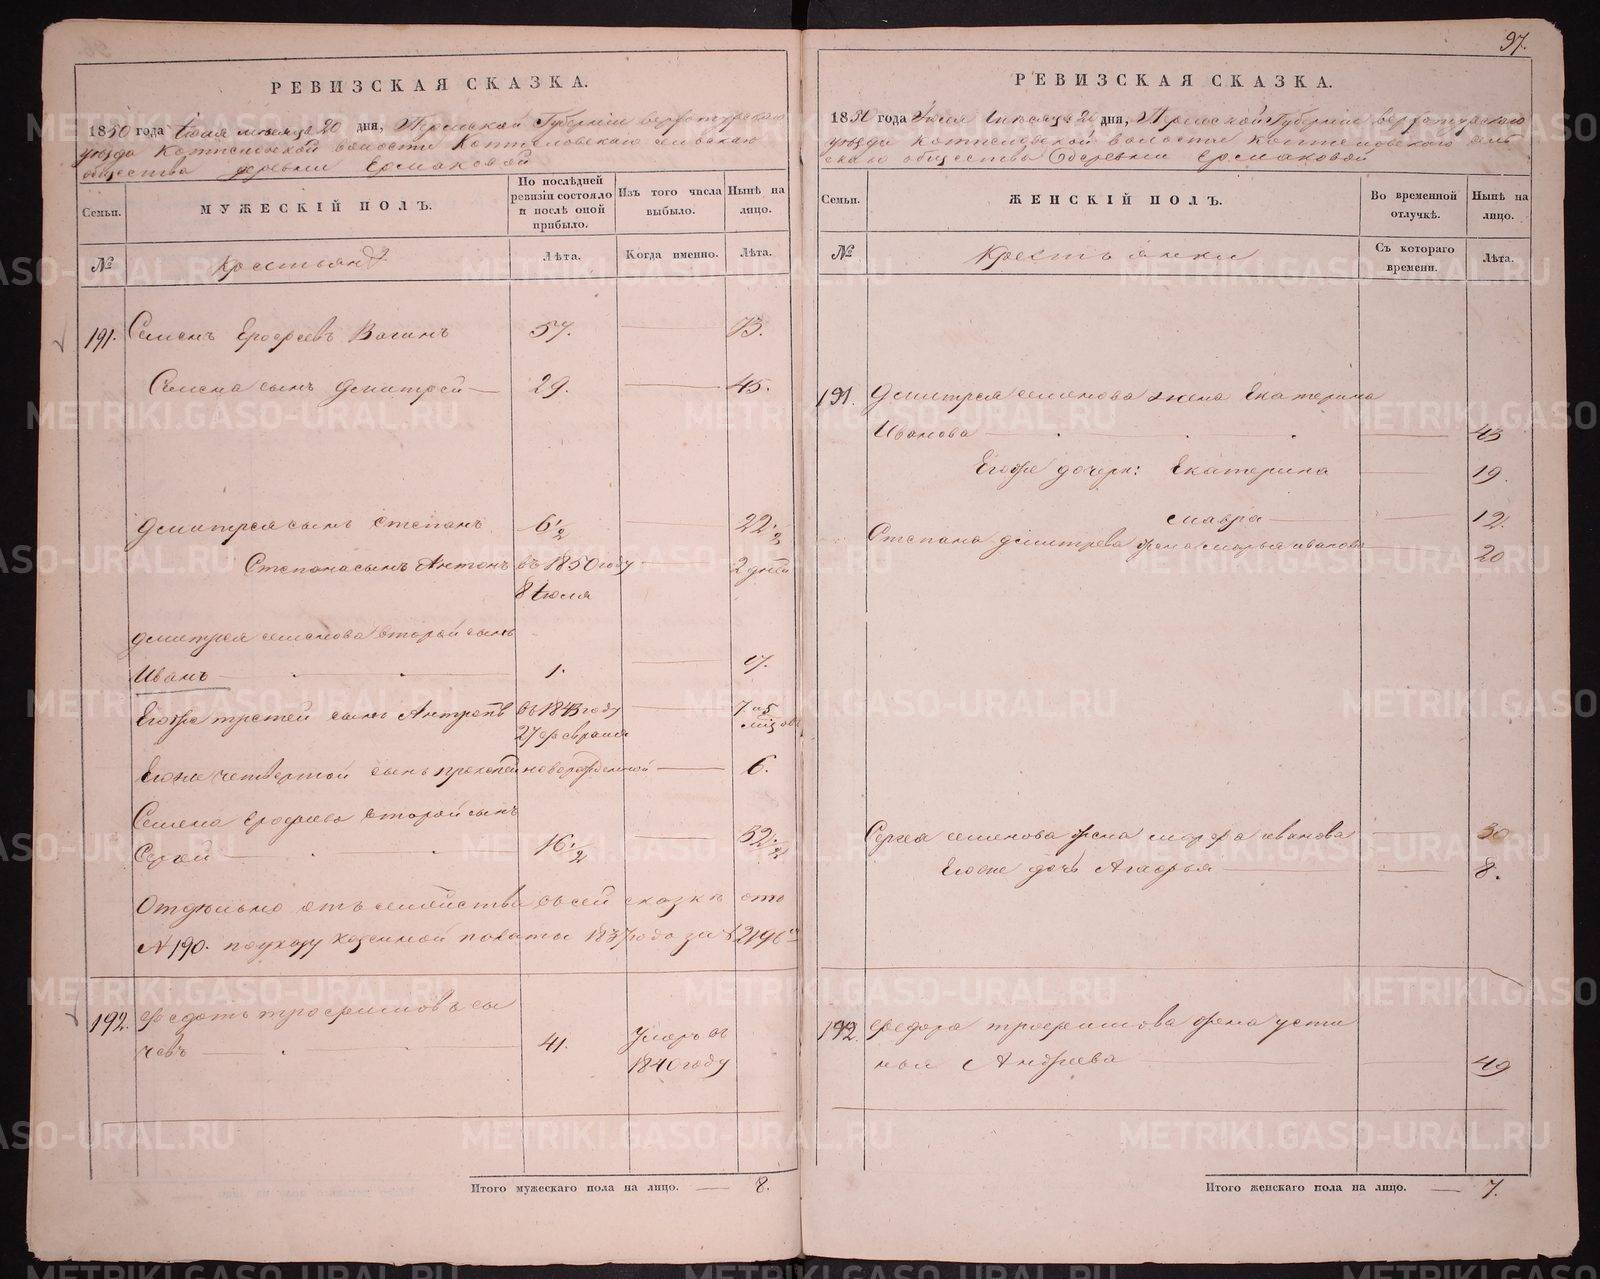 97.
РЕВИЗСКАЯ СКАЗКА.
1850 года Июля месяца 20 дня, Пермской Губернии Верхотурскаго
уезда Коптеловской волости Коптеловскаго сельскаго
общества деревни Ермаковой
Семьи. МУЖЕСКІЙ ПОЛЪ. По послѣдней ревизіи состояло и послѣ оной прибыло. Изъ того числа выбыло. Нынѣ на лицо.
№ Крестьян Лѣта. Когда именно. Лѣта.
191. Семенъ Ерофеевъ Вагинъ 57. 73.
Семена сынъ Дмитрей 29. 45.
Дмитрея сынъ Степанъ 6 1/2 22 1/2
Степана сынъ Антонъ въ 1850 году 2 дней
8 Июля
Дмитрея Семенова второй сынъ
Иванъ 1. 17.
Егоже третей сынъ Антропъ въ 1843 году 7 и 5
27 февраля
Егоже четвертой сынъ новорожденной 6.
Семена Ерофеева второй сынъ
Сергей 16 1/2 32 1/2
Отдельно отъ семейства всей сказки
№ 190. по указу казенной палаты 1837 года за
192. Федотъ Трофимовъ Сы
чевъ 41. Умеръ въ
1840 году
Итого мужескаго пола на лицо. 8.
РЕВИЗСКАЯ СКАЗКА.
1850 года Июля месяца 20 дня, Пермской Губернии Верхотурскаго
уезда Коптеловской волости Коптеловскаго сель
скаго общества деревни Ермаковой
Семьи. ЖЕНСКІЙ ПОЛЪ. Во временной отлучкѣ. Нынѣ на лицо.
№ Крестьянки Съ котораго времени. Лѣта.
191. Дмитрея Семенова жена Екатерина
Иванова 43
Егоже дочери: Екатерина 19.
Мавра 12.
Степана Дмитрева жена Марья Иванова 20
Сергея Семенова жена Марфа Иванова 30
Егоже дочь 8.
192. Федора Трофимова жена Усти
нья Андреева 49
Итого женскаго пола на лицо. 7.